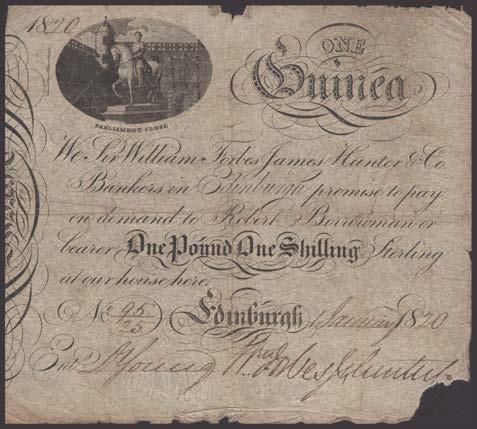 1820
PARLIAMENT CLOSE
ONE
Guinea
We Sir William Forbes James Hunter & Co.
Bankers in Edinburgh promise to pay
on demand to Robert Borrowman or
bearer One Pound One Shilling Sterling
at our house here.
No. 95/25
Edinburgh 1 January 1820
Entd. D Young Wm Forbes J Hunter & Co.